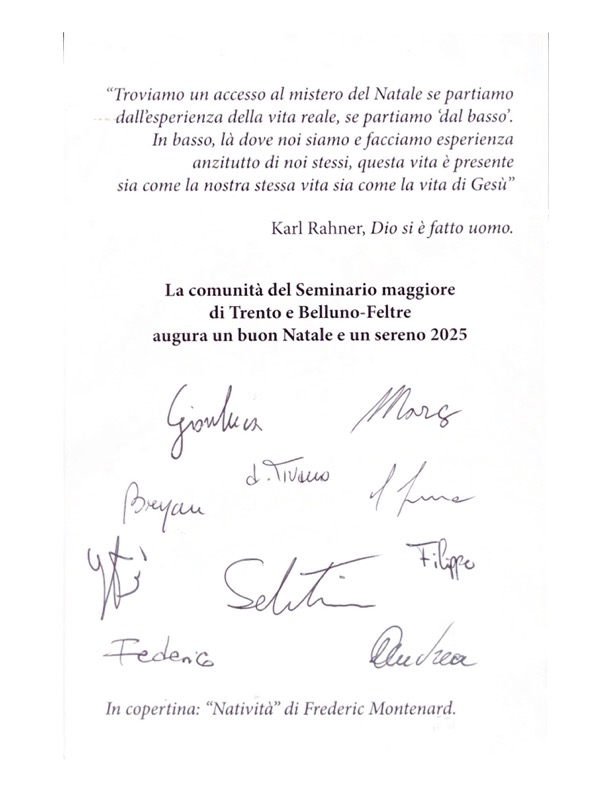 “Troviamo un accesso al mistero del Natale se partiamo
dall’esperienza della vita reale, se partiamo ‘dal basso’.
In basso, là dove noi siamo e facciamo esperienza
anzitutto di noi stessi, questa vita è presente
sia come la nostra stessa vita sia come la vita di Gesù”
Karl Rahner, Dio si è fatto uomo.
La comunità del Seminario maggiore
di Trento e Belluno-Feltre
augura un buon Natale e un sereno 2025
Gianluca
d. Tiziano
Bryan
Filippo
Federico
Andrea
In copertina: “Natività” di Frederic Montenard.